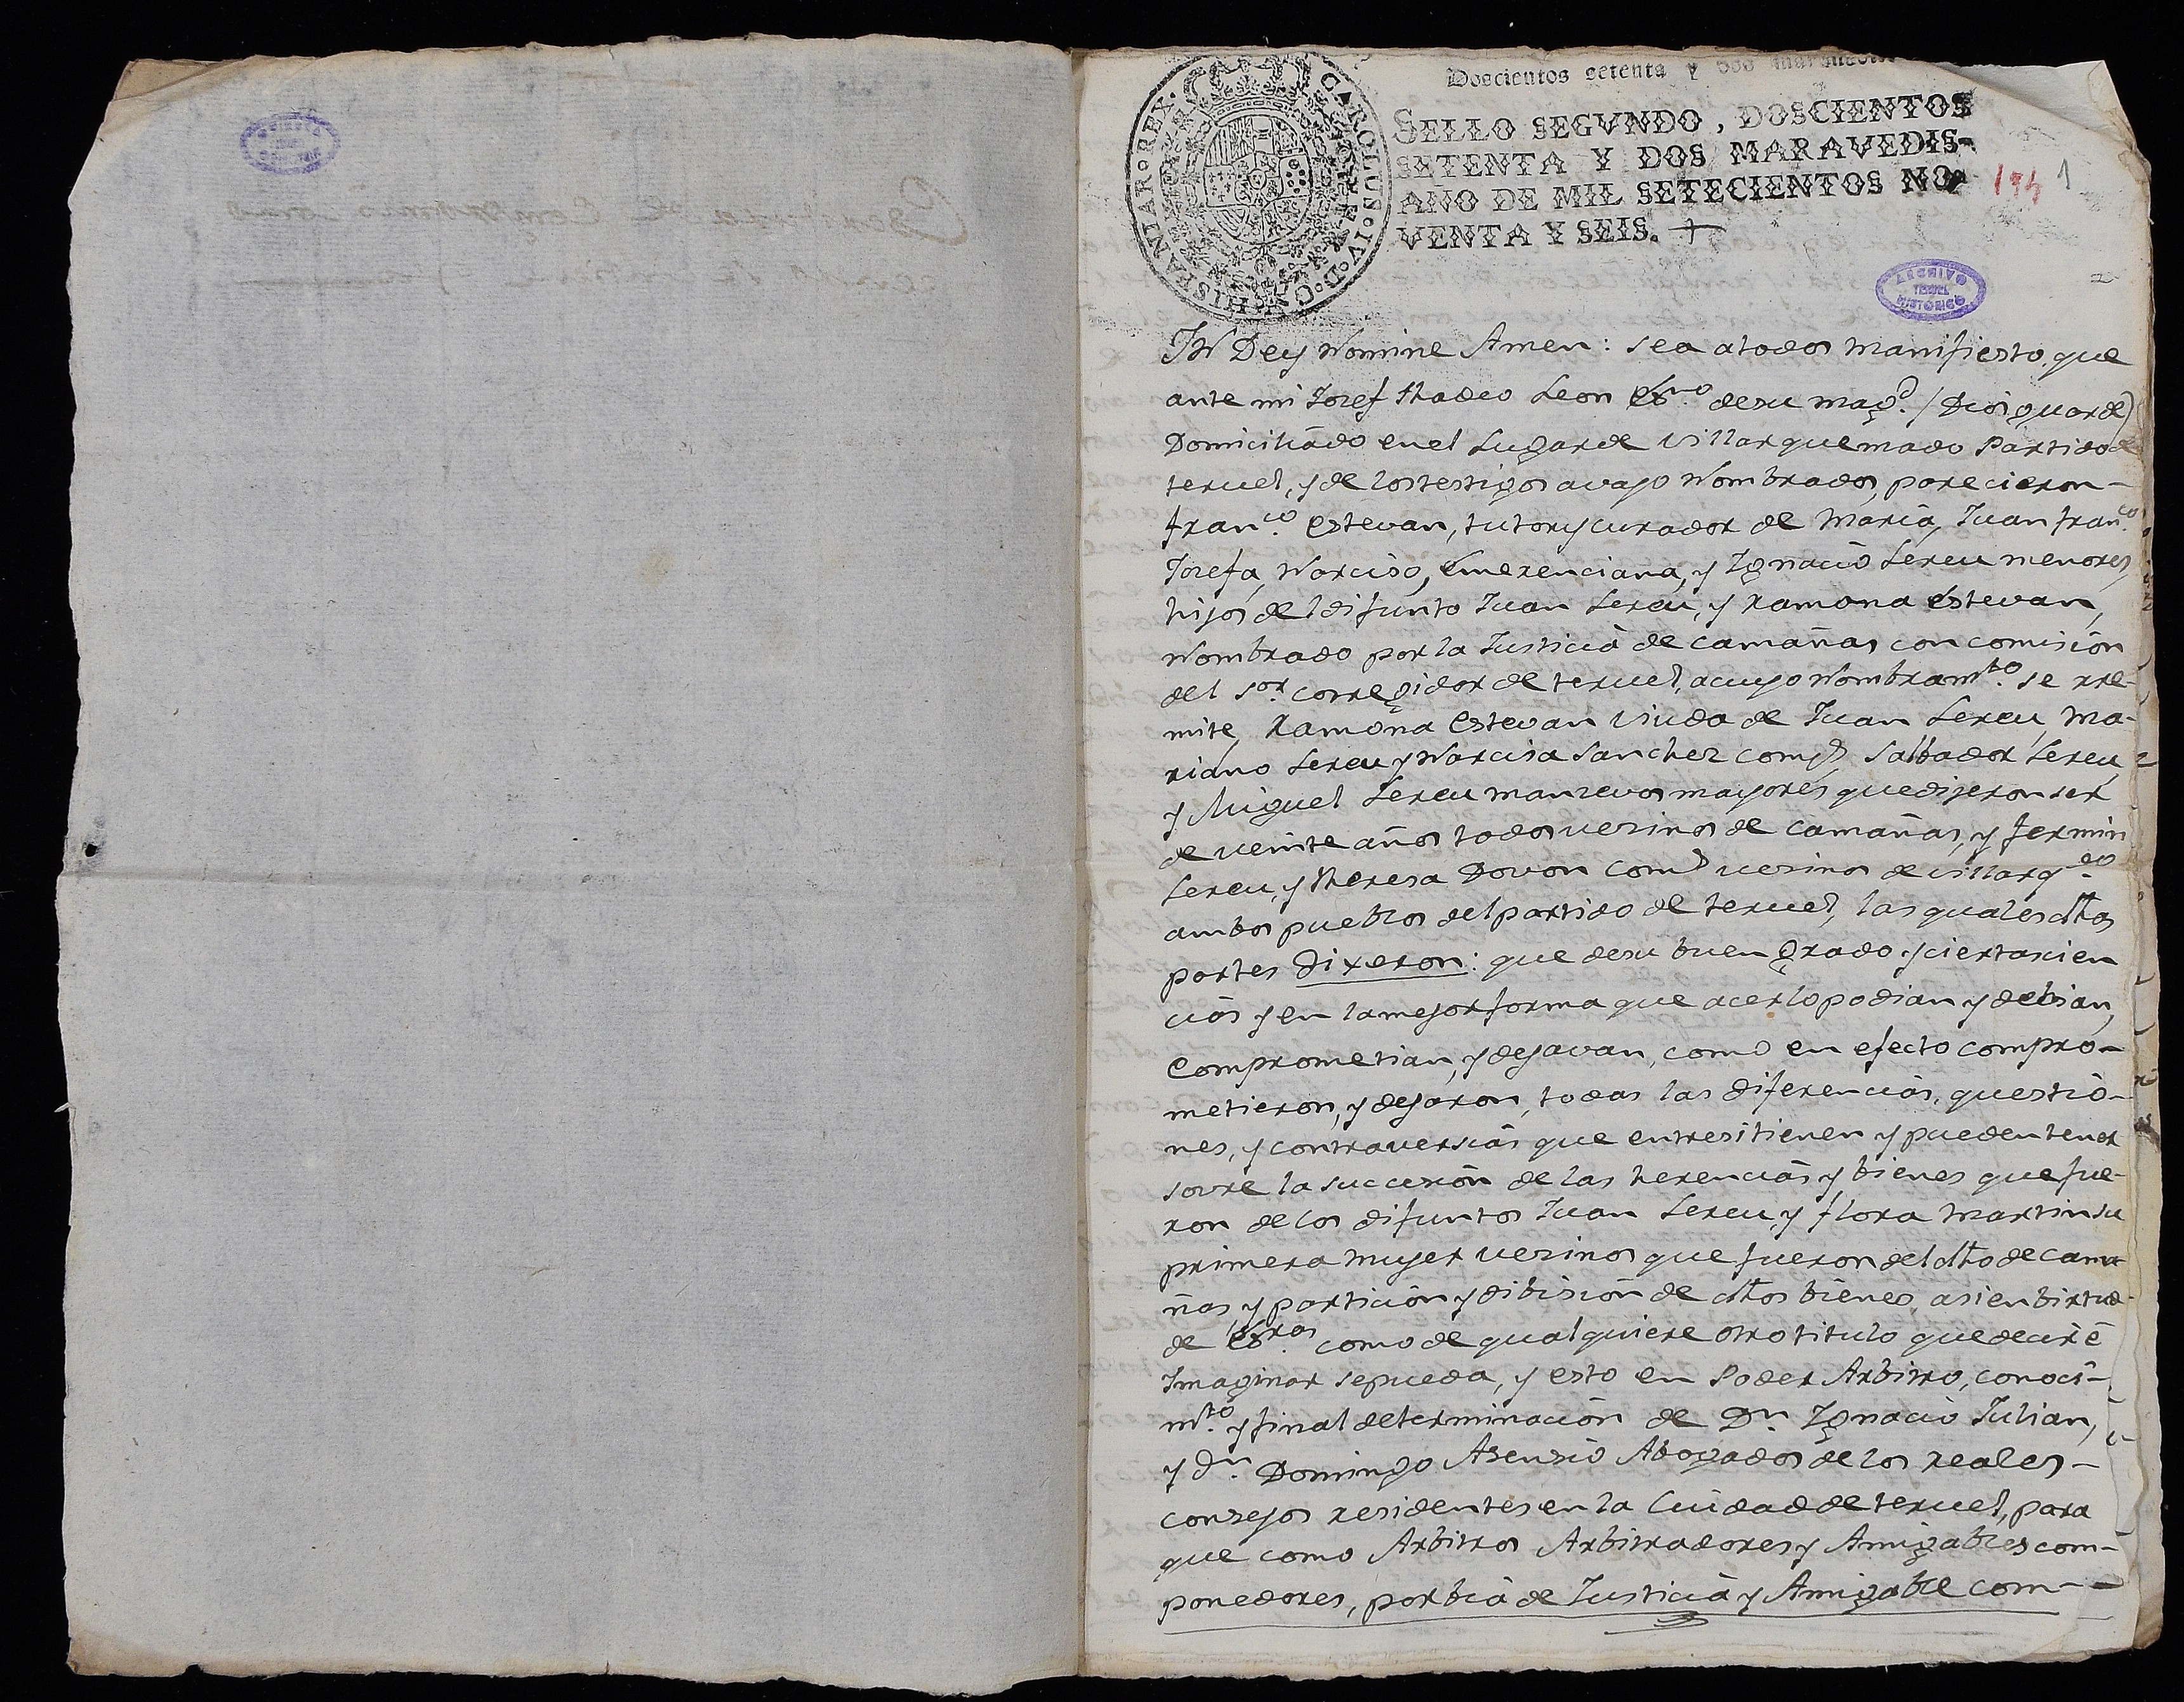 Doscientos setenta y dos
SELLO SEGVNDO, DOSCIENTOS
SETENTA Y DOS MARAVEDIS-
AÑO DE MIL SETECIENTOS NO-
VENTA Y SEIS.
CAROLUS·IV·D·G·HISPANIAR·REX·
1
TERUEL
HISTORICO
IN Dey Nomine Amen: sea atodos manifiesto, que
ante mi Josef thadeo Leon Essno. desu magd. (Dios guarde)
Domiciliado enel Lugar de Villarquemado Partido de
teruel, y de los testigos avajo Nombrados, parecieron-
franco. Estevan, tutor y curador de Maria, Juan franco.
Josefa, Narciso, Emerenciana, y Ignacio Lereu menores,
hijos del difunto Juan Lereu, y Ramona Estevan,
Nombrado por la Justicia de camañas con comision
del sor. corregidor de teruel, acuyo Nombramto. se rre-
mite, Ramona Estevan Viuda de Juan Lereu, Ma-
riano Lereu y Narcisa Sanchez comgs, Salbador Lereu,
y Miguel Lereu manzevos mayores que dijeron ser
de veinte años todos vezinos de camañas, y fermin
Lereu, y theresa Dovon coms vezinos de villarqdo.
ambos pueblos del partido de teruel, las quales dhas
partes Dixeron: que desu buen grado y ciertascien
cias y en la mejor forma que acerlo podian y debian,
Comprometian, y dejavan, como en efecto compro-
metieron, y dejaron, todas las diferencias, questio-
nes, y contraversias que entresi tienen y pueden tener
sovre la succesion de las herencias y bienes que fue-
ron delos difuntos Juan Lereu, y flora Martin su
primera mujer vezinos que fueron del dho de cama
ñas y particion y dibision de dhos bienes, asi en birtud
de Essras. como de qualquiere otro titulo que decir è
Imaginar sepueda, y esto en Poder Arbitro, conoci-
mto. y final determinacion de Dn. Ignacio Julian,
y dn. Domingo Asensio Abogados de los reales-
consejos residentes en la Ciudad de teruel, para
que como Arbitros Arbitradores y Amigables com-
ponedores, por bia de Justicia y Amigable com-